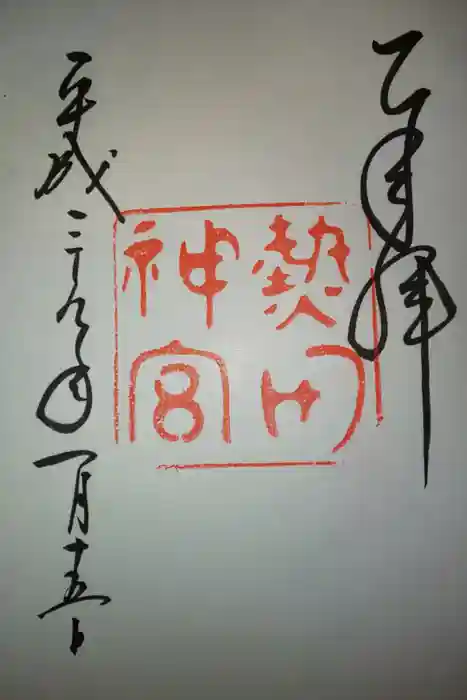 奉拝
熱田
神宮
平成二十九年一月十五日